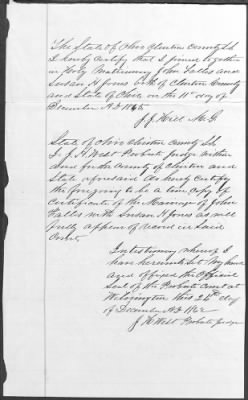 The State of Ohio Clinton County Ss
I hereby Certify that I joined together
in Holy Matrimony John Falls and
Susan H Jones both of Clinton County
and State of Ohio on the 11th day of
December AD 1845
J J Hill M.G
State of Ohio Clinton County Ss
I J. H. West Probate Judge within
and for the County of Clinton and
State aforesaid do hereby Certify
the foregoing to be a true Copy of
Certificate of the Marriage of John
Falls with Susan H Jones as will
fully appear of record in said
Court.
In testimony whereof I
have hereunto Set my hand
and affixed the Official
Seal of the Probate Court at
Wilmington this 26th day
of December AD 1862
J H West Probate Judge